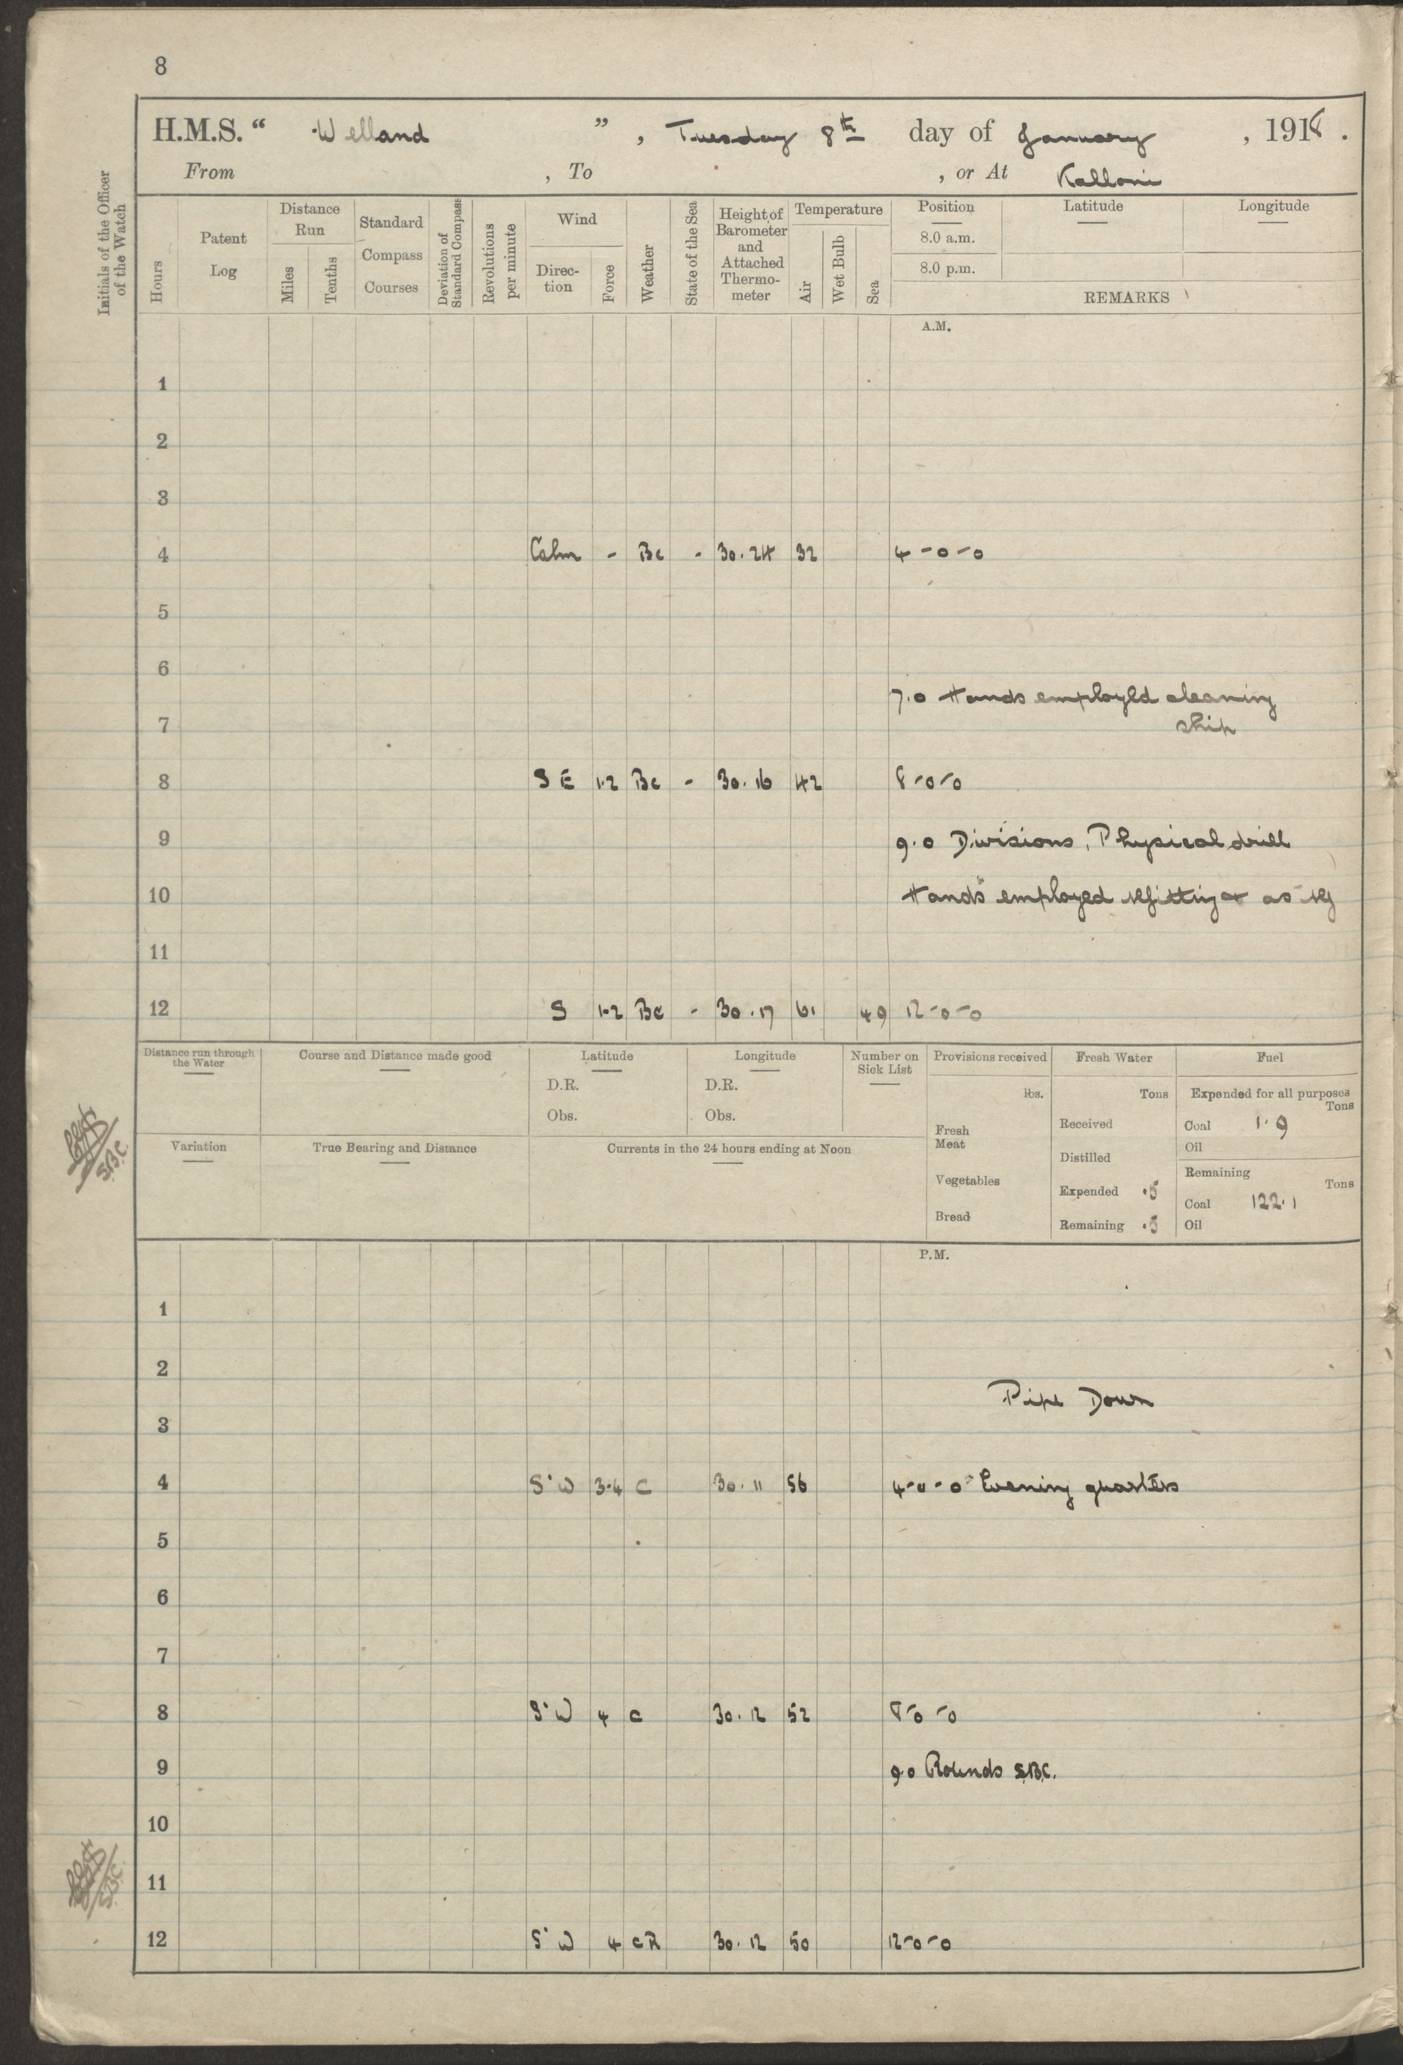 8
H.M.S. " Welland " , Tuesday 8th day of January , 1918.
From , To , or At Kalloni
Initials of the Officer of the Watch
Hours
Patent Log
Distance Run
Miles
Tenths
Standard Compass Courses
Deviation of Standard Compass
Revolutions per minute
Wind
Direc-tion
Force
Weather
State of the Sea
Height of Barometer and Attached Thermo-meter
Temperature
Air
Wet Bulb
Sea
Position
8.0 a.m.
8.0 p.m.
Latitude
Longitude
REMARKS
A.M.
1
2
3
4 Calm - Bc - 30.24 32 4-0-0
5
6
7.0 Hands employed cleaning
7 ship
8 S E 1-2 Bc - 30.16 42 8-0-0
9 9.0 Divisions, Physical drill
10 Hands employed refitting & as req
11
12 S 1-2 Bc - 30.17 61 49 12-0-0
Distance run through the Water
Course and Distance made good
Latitude
D.R.
Obs.
Longitude
D.R.
Obs.
Number on Sick List
Provisions received
lbs.
Fresh Meat
Vegetables
Bread
Fresh Water
Tons
Received
Distilled
Expended .5
Remaining .5
Fuel
Expended for all purposes
Tons
Coal 1.9
Oil
Remaining
Tons
Coal 122.1
Oil
Variation
True Bearing and Distance
Currents in the 24 hours ending at Noon
S.B.C.
P.M.
1
2
Pipe Down
3
4 S'W 3-4 C 30.11 56 4-0-0 Evening quarters
5
6
7
8 S'W 4 C 30.12 52 8-0-0
9 9.0 Rounds S.B.C.
10
11
S.B.C.
12 S'W 4 CR 30.12 50 12-0-0